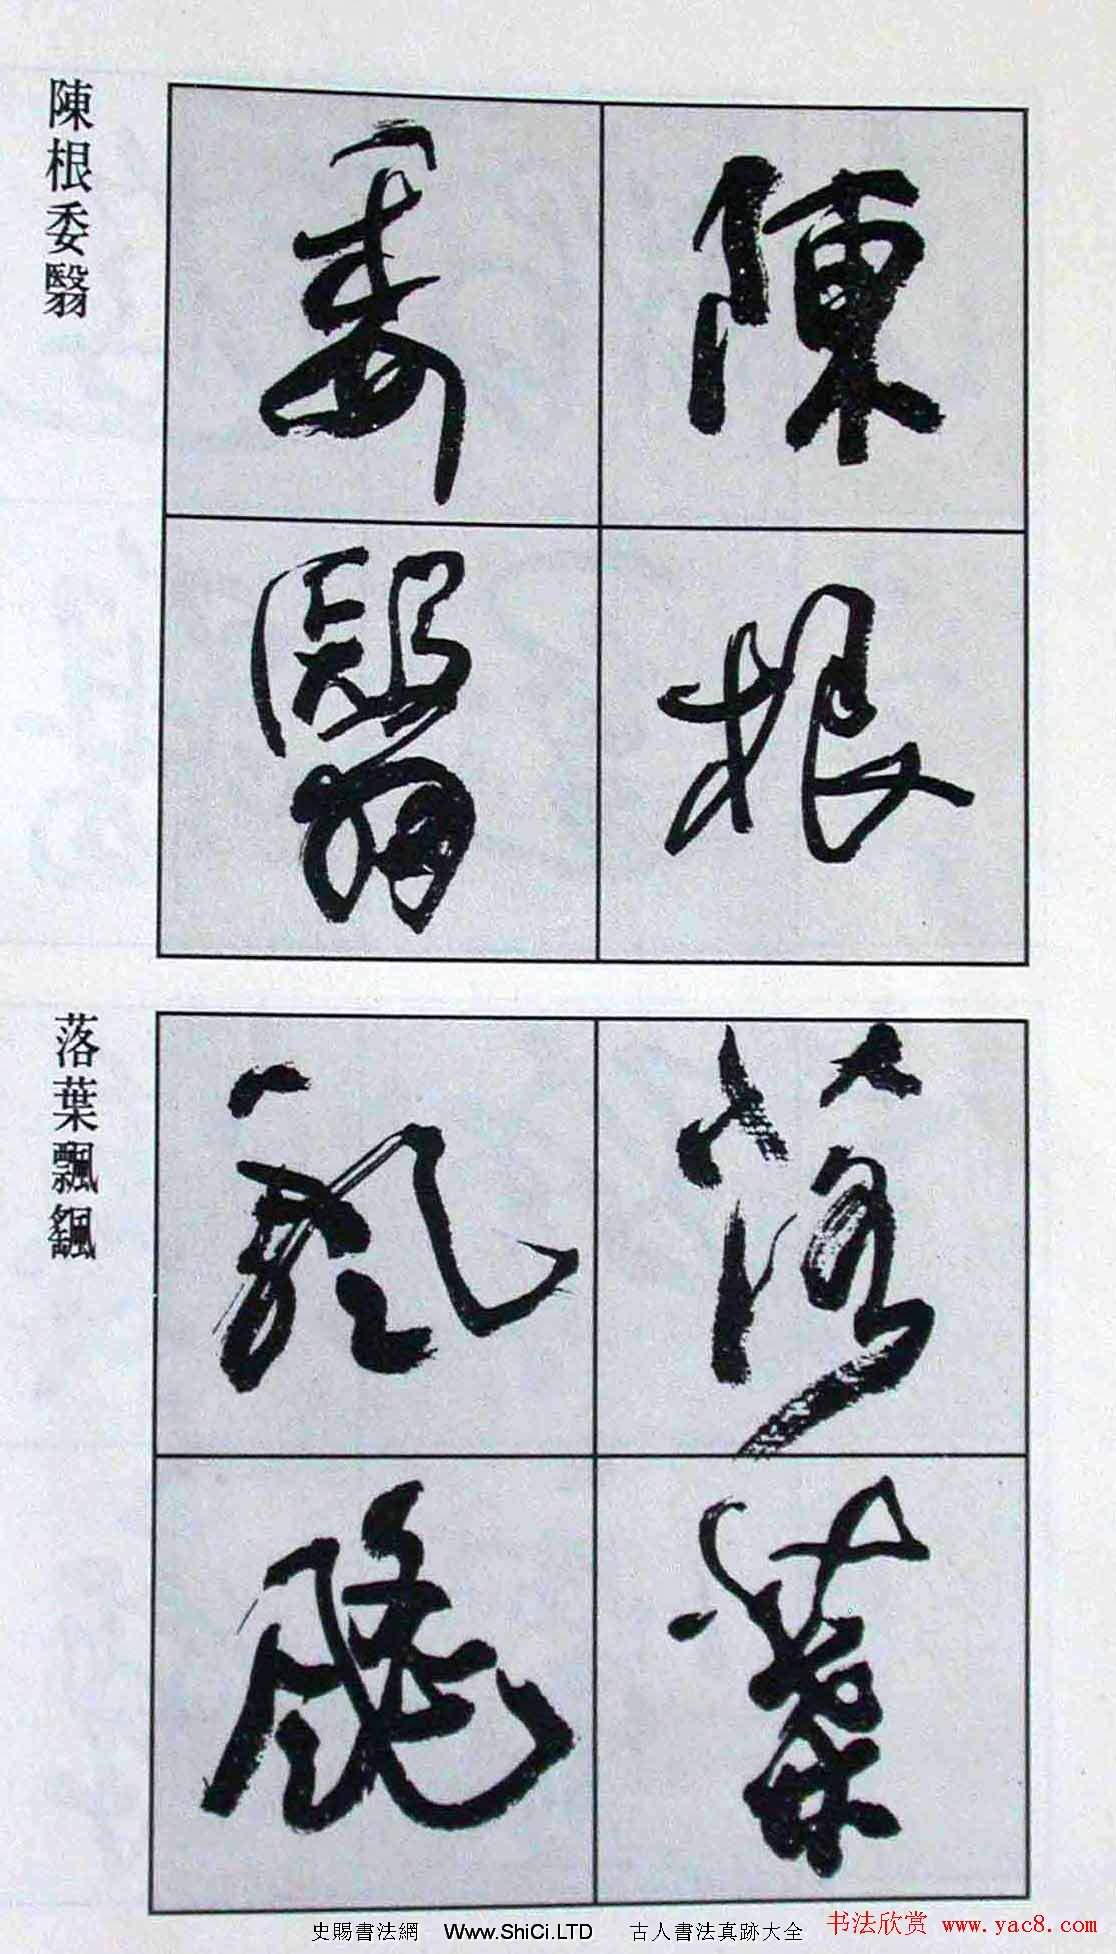 陳根委翳
陳根
委翳
落葉飄颻
落葉
飄颻
史賜書法網 Www.ShiCi.LTD 古人書法真跡大全
书法欣赏 www.yac8.com